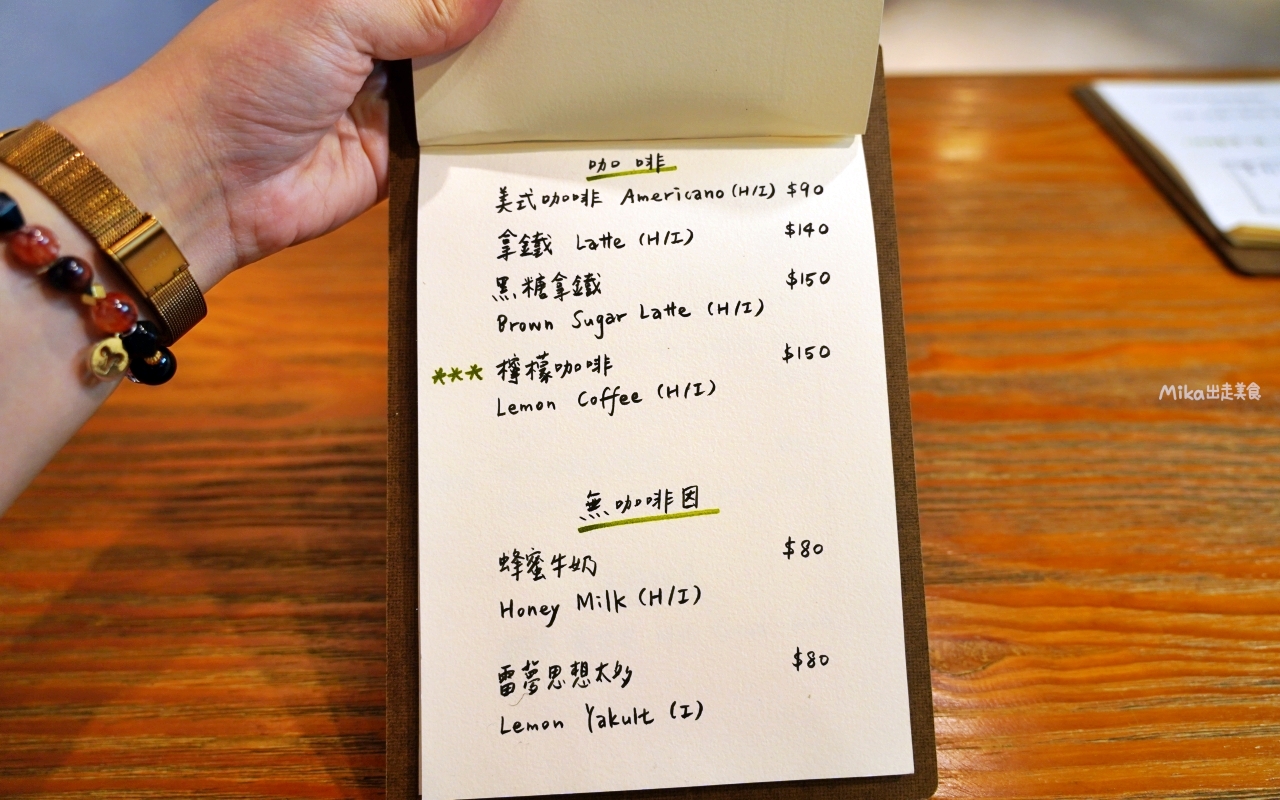 咖啡
美式咖啡 Americano (H/I) $90
拿鐵 Latte (H/I) $140
黑糖拿鐵 $150
Brown Sugar Latte (H/I)
*** 檸檬咖啡 $150
Lemon Coffee (H/I)
無咖啡因
蜂蜜牛奶 $80
Honey Milk (H/I)
雷夢思想太多 $80
Lemon Yakult (I)
Mika出走美食